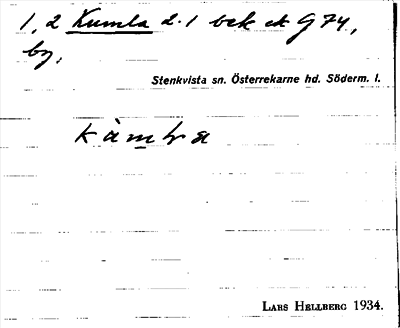 1, 2 Kumla 2.1 bek ek G 74,
by,
Stenkvista sn. Österrekarne hd. Söderm. l.
Lars Hellberg 1934.